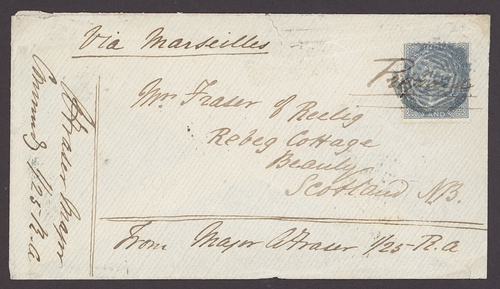 Via Marseilles
Mrs Fraser of Reelig
Rebeg Cottage
Beauly
Scotland NB.
From Major A Fraser 1/25 - R.a
A Fraser Major
Command 1/25 - R.a